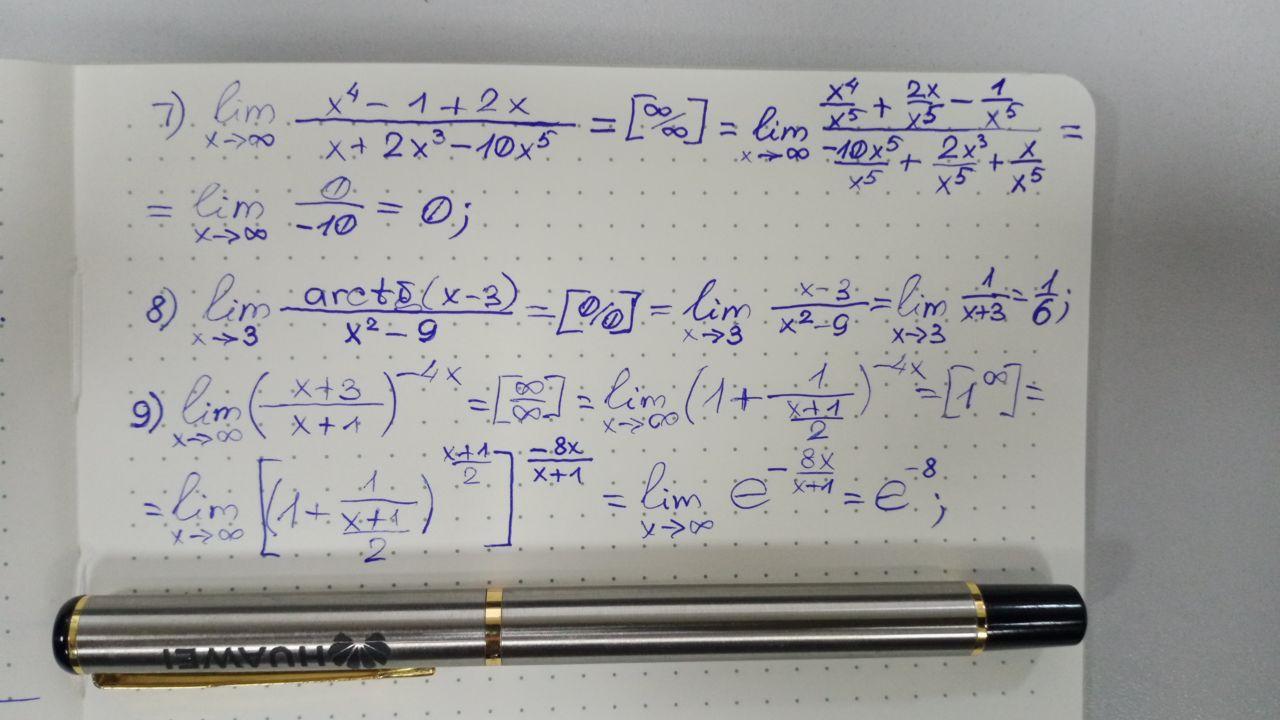 7) lim x→∞ (x⁴ - 1 + 2x)/(x + 2x³ - 10x⁵) = [∞/∞] = lim x→∞ (x⁴/x⁵ + 2x/x⁵ - 1/x⁵)/(-10x⁵/x⁵ + 2x³/x⁵ + x/x⁵) =
= lim x→∞ 0/-10 = 0;
8) lim x→3 arctg(x-3)/(x² - 9) = [0/0] = lim x→3 (x-3)/(x²-9) = lim x→3 1/(x+3) = 1/6;
9) lim x→∞ ((x+3)/(x+1))^(-4x) = [∞/∞] = lim x→∞ (1 + 1/((x+1)/2))^(-4x) = [1^∞] =
= lim x→∞ [(1 + 1/((x+1)/2))^((x+1)/2)]^(-8x/(x+1)) = lim x→∞ e^(-8x/(x+1)) = e⁻⁸;
HUAWEI